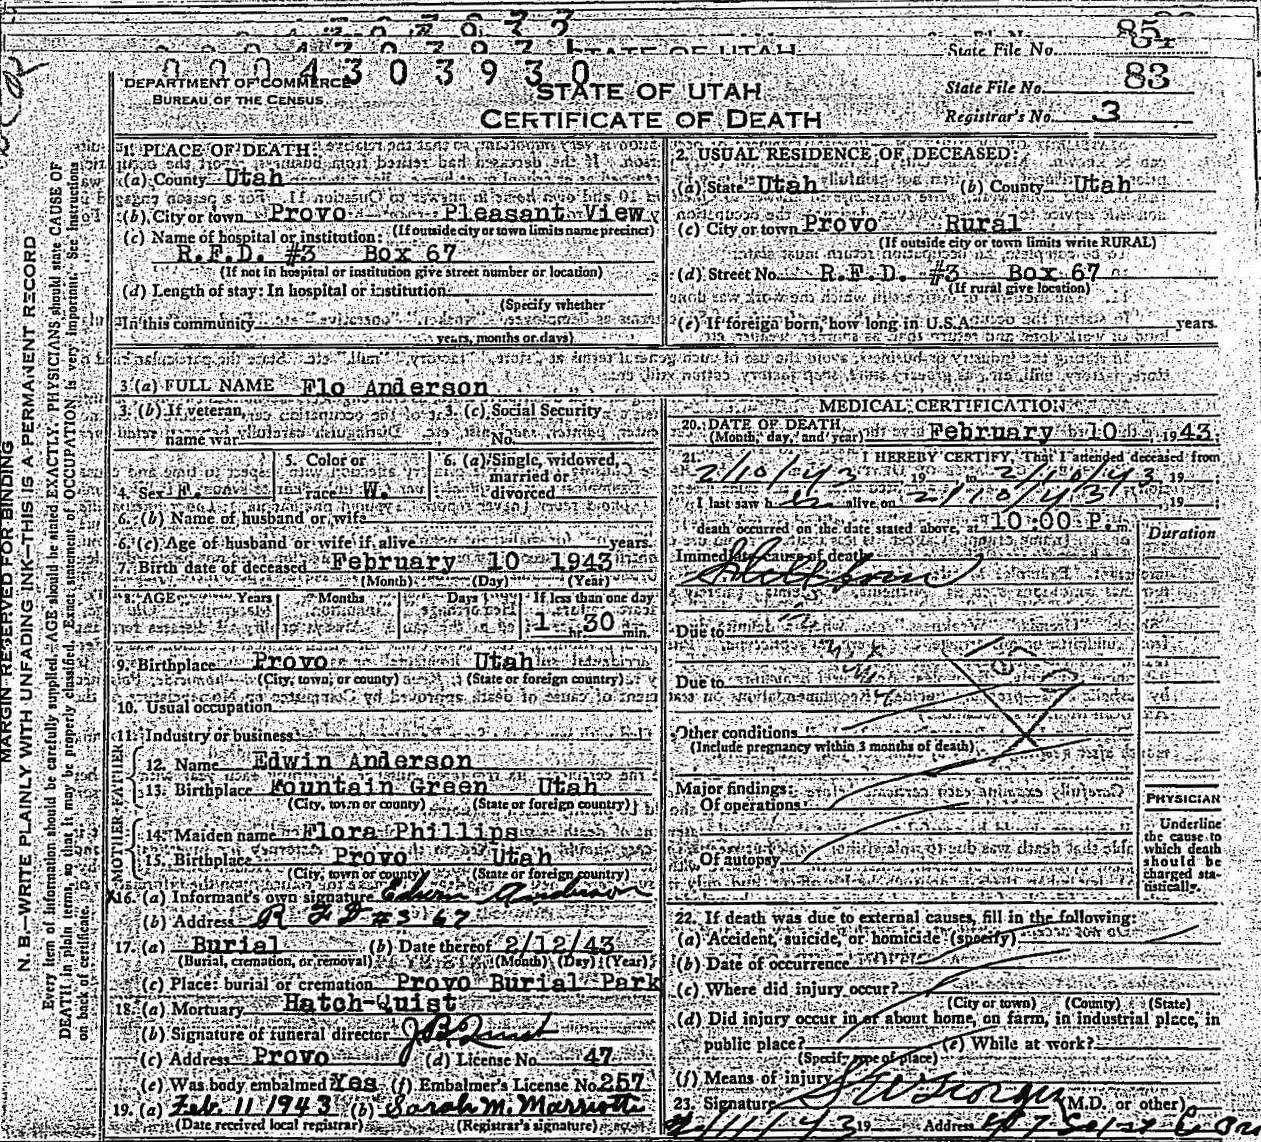 State File No. 85
0004303930
DEPARTMENT OF COMMERCE
BUREAU OF THE CENSUS
STATE OF UTAH
CERTIFICATE OF DEATH
State File No. 83
Registrar's No. 3
MARGIN RESERVED FOR BINDING
N. B.—WRITE PLAINLY WITH UNFADING INK—THIS IS A PERMANENT RECORD
Every item of information should be carefully supplied. AGE should be stated EXACTLY. PHYSICIANS should state CAUSE OF
DEATH in plain terms, so that it may be properly classified. Exact statement of OCCUPATION is very important. See instructions
on back of certificate.
1. PLACE OF DEATH:
(a) County Utah
(b) City or town Provo Pleasant View
(If outside city or town limits name precinct)
(c) Name of hospital or institution:
R.F.D. #3 Box 67
(If not in hospital or institution give street number or location)
(d) Length of stay: In hospital or institution
(Specify whether
In this community
years, months or days)
2. USUAL RESIDENCE OF DECEASED:
(a) State Utah (b) County Utah
(c) City or town Provo Rural
(If outside city or town limits write RURAL)
(d) Street No. R.F.D. #3 Box 67
(If rural give location)
(e) If foreign born, how long in U.S.A. years.
3 (a) FULL NAME Flo Anderson
3. (b) If veteran, name war
3. (c) Social Security No.
4. Sex F.
5. Color or race W.
6. (a) Single, widowed, married or divorced
6. (b) Name of husband or wife
6. (c) Age of husband or wife if alive years.
7. Birth date of deceased February 10 1943
(Month) (Day) (Year)
8. AGE Years Months Days If less than one day
1 hr. 30 min.
9. Birthplace Provo Utah
(City, town, or county) (State or foreign country)
10. Usual occupation
11. Industry or business
FATHER
12. Name Edwin Anderson
13. Birthplace Fountain Green Utah
(City, town or county) (State or foreign country)
MOTHER
14. Maiden name Flora Phillips
15. Birthplace Provo Utah
(City, town or county) (State or foreign country)
X16. (a) Informant's own signature Edwin Anderson
(b) Address R F D #3 67
17. (a) Burial (b) Date thereof 2/12/43
(Burial, cremation, or removal) (Month) (Day) (Year)
(c) Place: burial or cremation Provo Burial Park
18. (a) Mortuary Hatch-Quist
(b) Signature of funeral director J.B. Quist
(c) Address Provo (d) License No. 47
(e) Was body embalmed Yes (f) Embalmer's License No. 257
19. (a) Feb. 11 1943 (b) Sarah M. Marriott
(Date received local registrar) (Registrar's signature)
MEDICAL CERTIFICATION
20. DATE OF DEATH February 10, 1943.
(Month, day, and year)
21. I HEREBY CERTIFY, That I attended deceased from
2/10/43 19 to 2/10/43, 19
I last saw her alive on 2/10/43, 19
death occurred on the date stated above, at 10:00 P.m.
Duration
Immediate cause of death
Stillborn
Due to
Due to
Other conditions
(Include pregnancy within 3 months of death)
Major findings:
Of operations
Of autopsy
PHYSICIAN
Underline
the cause to
which death
should be
charged sta-
tistically.
22. If death was due to external causes, fill in the following:
(a) Accident, suicide, or homicide (specify)
(b) Date of occurrence
(c) Where did injury occur?
(City or town) (County) (State)
(d) Did injury occur in or about home, on farm, in industrial place, in
public place? (e) While at work?
(Specify type of place)
(f) Means of injury
23. Signature (M.D. or other)
2/11/43 19 Address